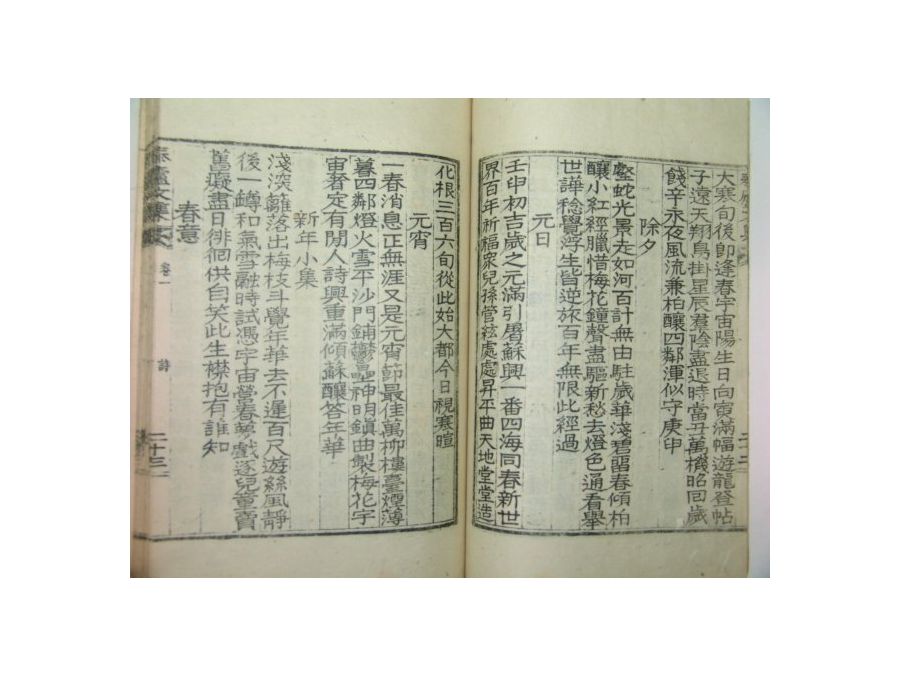 大寒旬後卽逢春宇宙陽生日向寅滿幅遊龍登帖
子遠天翔鳥掛星辰羣陰盡退時當丑萬機昭回歲
餞辛永夜風流兼柏釀四鄰渾似守庚申
除夕
壑蛇光景走如河百計無由駐歲華淺碧留春傾柏
釀小紅經臘惜梅花鐘聲盡驅新愁去燈色通看舉
世譁稔覺浮生皆逆旅百年無限此經過
元日
壬申初吉歲之元滿引屠蘇興一番四海同春新世
界百年祈福衆兒孫管絃處處昇平曲天地堂堂造
化根三百六旬從此始大都今日視寒暄
元宵
一春消息正無涯又是元宵節最佳萬柳樓臺煙薄
暮四鄰燈火雪平沙門鋪鬱壘神明鎮曲製梅花字
宙者定有閒人詩興重滿傾蘇釀答年華
新年小集
淺深籬落出梅枝斗覺年華去不遲百尺遊絲風靜
後一罇和氣雪融時試憑宇宙營春夢戲逐兒童賣
舊癡盡日徘徊供自笑此生襟抱有誰知
春意
文集 卷一 詩 二十三